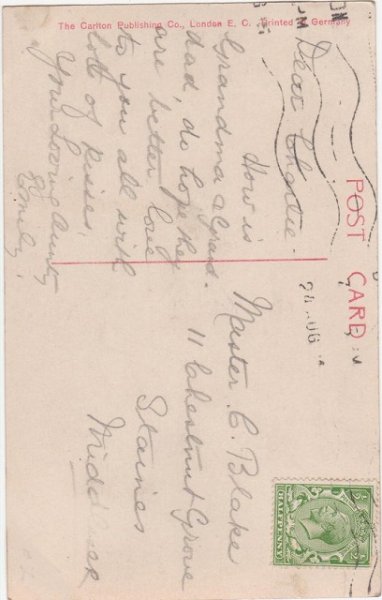 The Carlton Publishing Co., London E. C. Printed in Germany
POST CARD
Dear Charlie.
How is
Grandma & Grand-
dad, do hope they
are better love
to you all with
lots of kisses,
Your Loving Aunty
Emily.
Master. C. Blake
11 Chestnut Grove
Staines
Middlesex
HALFPENNY